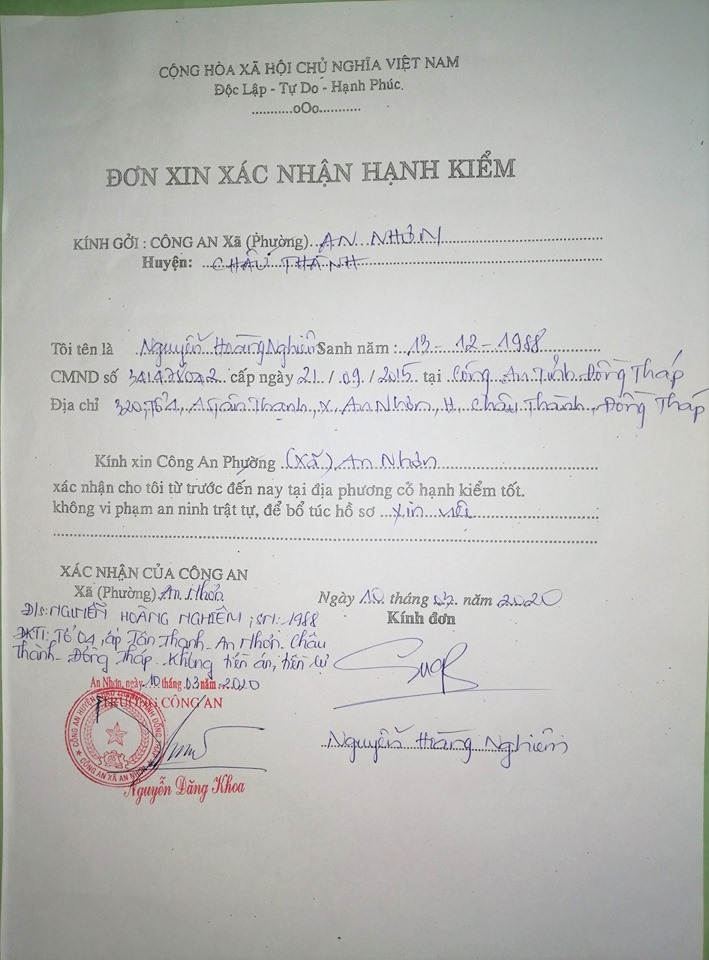 CỘNG HÒA XÃ HỘI CHỦ NGHĨA VIỆT NAM
Độc Lập - Tự Do - Hạnh Phúc.
...........oOo...........
ĐƠN XIN XÁC NHẬN HẠNH KIỂM
KÍNH GỞI : CÔNG AN Xã (Phường) AN NHƠN
Huyện: CHÂU THÀNH
Tôi tên là Nguyễn Hoàng Nghiêm Sanh năm : 13 - 12 - 1988
CMND số cấp ngày 21 / 09 / 2015 tại Công An Tỉnh Đồng Tháp
Địa chỉ 320, Tổ 1, A Tân Thạnh, X. An Nhơn, H. Châu Thành, Đồng Tháp
Kính xin Công An Phường (Xã) An Nhơn
xác nhận cho tôi từ trước đến nay tại địa phương có hạnh kiểm tốt.
không vi phạm an ninh trật tự, để bổ túc hồ sơ xin việc
XÁC NHẬN CỦA CÔNG AN
Xã (Phường) An Nhơn
Đ/s: NGUYỄN HOÀNG NGHIÊM; SN: 1988
ĐKTT: Tổ 01, ấp Tân Thạnh - An Nhơn. Châu
Thành - Đồng Tháp. Không tiền án, tiền sự
An Nhơn, ngày 10 tháng 03 năm 2020
TRƯỞNG CÔNG AN
CÔNG AN XÃ AN NHƠN
Nguyễn Đăng Khoa
Ngày 10 tháng 03 năm 2020
Kính đơn
Nguyễn Hoàng Nghiêm